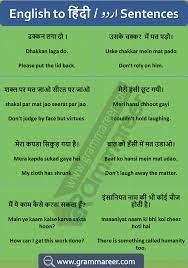 English to हिंदी / اردو Sentences
ढक्कन लगा दो ।
Dhakkan laga do.
Please put the lid back.
उसके चक्कर में मत पड़ो।
Uske chakkar mein mat pado.
Don't rely on him.
शक्ल पर मत जाओ सीरत पर जाओ
shakal par mat jao seerat par jao
Don't judge by face but virtues.
मेरी हंसी छूट गयी।
Meri hansi chhoot gayi
I couldn't hold laughing.
मेरा कपड़ा सिकुड़ गया है।
Mera kapda sukad gaya hai.
My cloth has shrunk.
बात को हँसी में मत उड़ाओ।
Baat ko hansi mein mat udao.
Don't laugh away the matter.
मैं ये काम कैसे करता सकता हूँ?
Main ye kaam kaise karta sakta hoon?
How can I get this work done?
इंसानियत नाम की भी कोई चीज़ होती है।
Insaaniyat naam ki bhi koi cheez hoti hai
There is something called humanity too.
www.grammareer.com